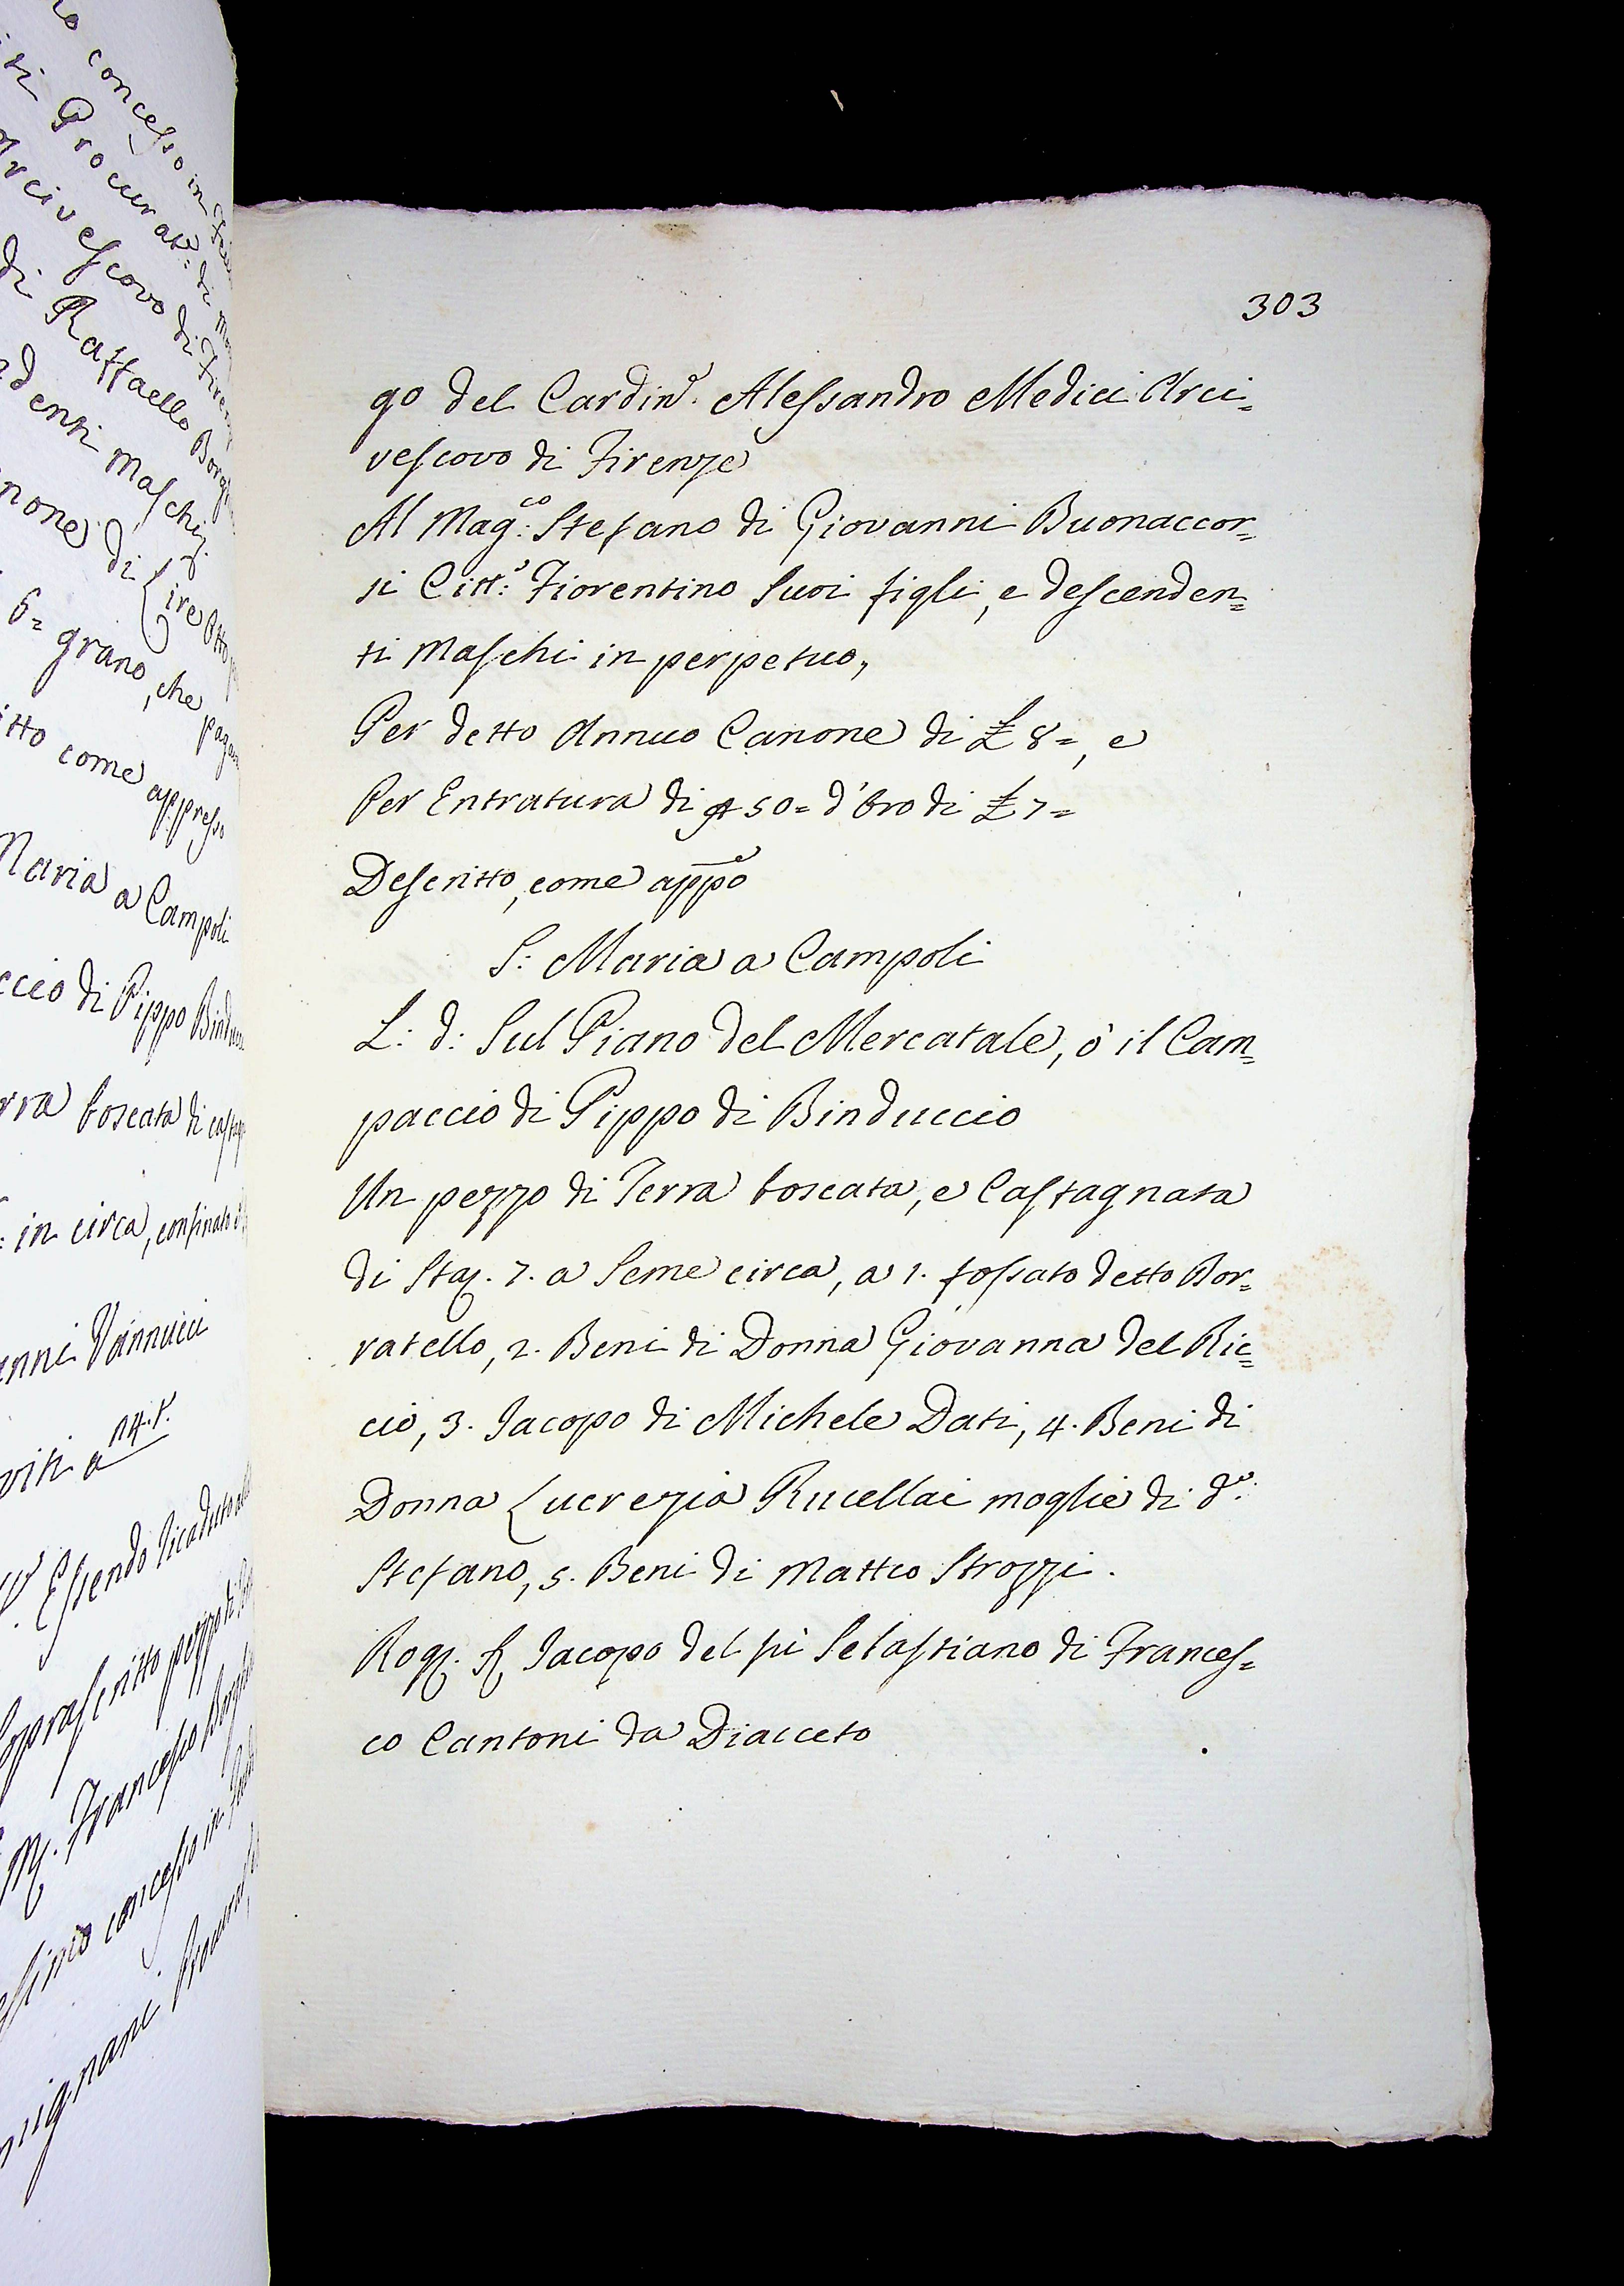 303
go del Cardin.e Alessandro Medici Arci=
vescovo di Firenze
Al Mag.co Stefano di Giovanni Buonaccor=
si Citt.o Fiorentino Suoi figli, e descenden=
ti Maschi in perpetuo,
Per detto Annuo Canone di £ 8=, e
Per Entratura di 50= d'Oro di £ 7=
Descritto, come appo
S: Maria a Campoli
L: d: Sul Piano del Mercatale, ò il Cam=
paccio di Pippo di Binduccio
Un pezzo di Terra boscata, e Castagnata
di Sta. 7. a Seme circa, a 1. fossato detto Bor=
ratello, 2. Beni di Donna Giovanna del Ric=
cio, 3. Jacopo di Michele Dati, 4. Beni di
Donna Lucrezia Rucellai moglie di d.o
Stefano, 5. Beni di Matteo Strozzi.
Rog. Jacopo del fù Sebastiano di Frances=
co Cantoni da Diacceto
concesso in
Procurat.e di
Arcivescovo di Firenze
di Raffaello
maschi
none di Lire Otto
6= grano, che
itto come appresso
Maria a Campoli
ccio di Pippo
rra boscata di
in circa, confinato
anni Vannucci
Essendo ricaduto
Soprascritto pezzo di
M. Francesco
concesso in